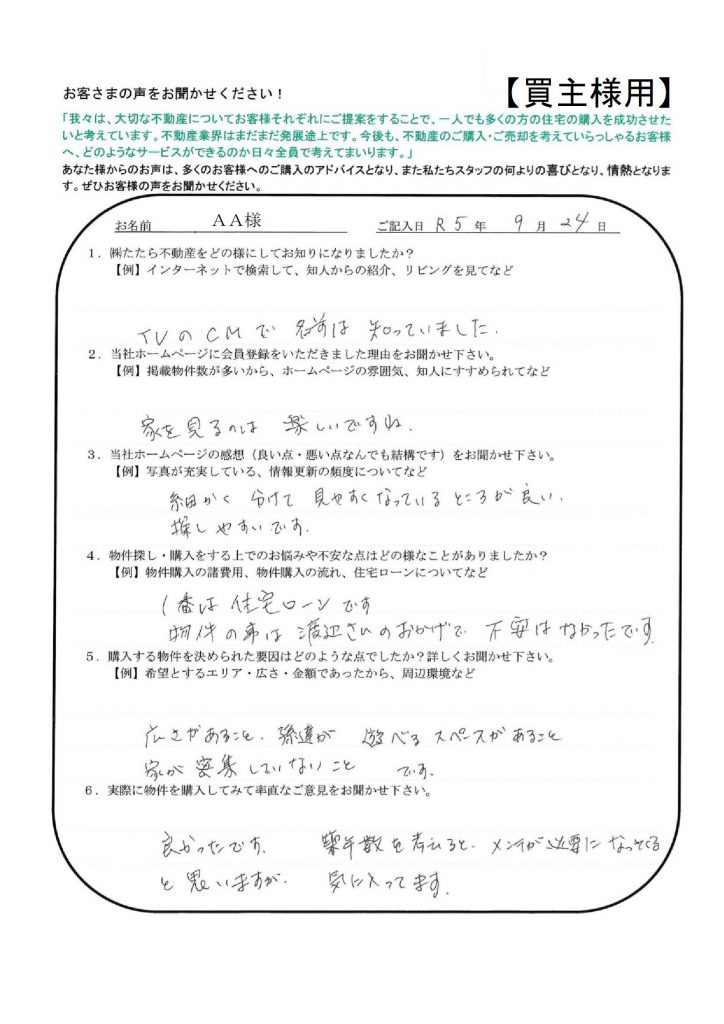 お客さまの声をお聞かせください！
【買主様用】
「我々は、大切な不動産についてお客様それぞれにご提案をすることで、一人でも多くの方の住宅の購入を成功させた
いと考えています。不動産業界はまだまだ発展途上です。今後も、不動産のご購入・ご売却を考えていらっしゃるお客様
へ、どのようなサービスができるのか日々全員で考えてまいります。」
あなた様からのお声は、多くのお客様へのご購入のアドバイスとなり、また私たちスタッフの何よりの喜びとなり、情熱となりま
す。ぜひお客様の声をお聞かせください。
お名前 ＡＡ様 ご記入日 R5年 9月24日
１．㈱たたら不動産をどの様にしてお知りになりましたか？
【例】インターネットで検索して、知人からの紹介、リビングを見てなど
TVのCMで 名前は 知っていました.
２．当社ホームページに会員登録をいただきました理由をお聞かせ下さい。
【例】掲載物件数が多いから、ホームページの雰囲気、知人にすすめられてなど
家を見るのは 楽しいですね.
３．当社ホームページの感想（良い点・悪い点なんでも結構です）をお聞かせ下さい。
【例】写真が充実している、情報更新の頻度についてなど
細かく 分けて 見やすくなっているところが良い.
探しやすいです.
４．物件探し・購入をする上でのお悩みや不安な点はどの様なことがありましたか？
【例】物件購入の諸費用、物件購入の流れ、住宅ローンについてなど
1番は 住宅ローンです
物件の事は 渡辺さんのおかげで 不安はなかったです.
５．購入する物件を決められた要因はどのような点でしたか？詳しくお聞かせ下さい。
【例】希望とするエリア・広さ・金額であったから、周辺環境など
広さがあること. 孫達が 遊べる スペースがあること
家が 密集していないこと です.
６．実際に物件を購入してみて率直なご意見をお聞かせ下さい。
良かったです. 築年数を考えると. メンテが必要になってくる
と思いますが. 気に入ってます.